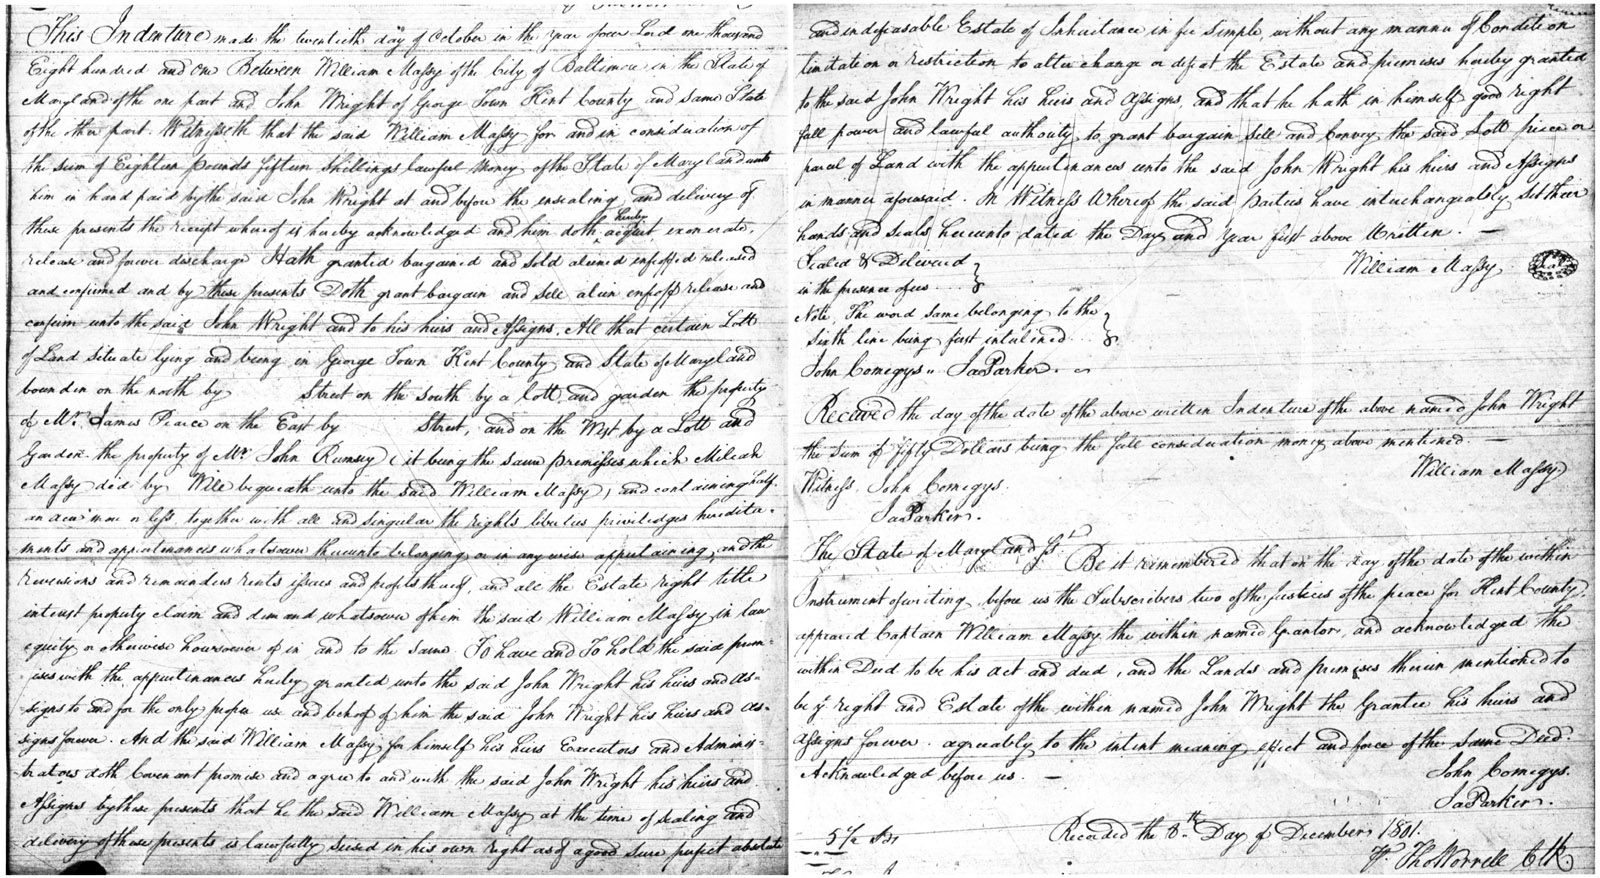 This Indenture made the twentieth day of October in the year of our Lord one thousand
Eight hundred and one Between William Massy of the City of Baltimore in the State of
Maryland of the one part and John Wright of George Town Kent County and same State
of the other part. Witnesseth that the said William Massy for and in consideration of
the sum of Eighteen pounds fifteen shillings lawful money of the State of Maryland unto
him in hand paid by the said John Wright at and before the ensealing and delivery of
these presents the receipt whereof is hereby acknowledged and him doth hereby acquit exonerate,
release and forever discharge Hath granted bargained and sold aliened enfeoffed released
and confirmed and by these presents Doth grant bargain and sell alien enfeoff release and
confirm unto the said John Wright and to his heirs and Assigns, All that certain Lott
of Land situate lying and being in George Town Kent County and State of Maryland
bounden on the north by Street on the south by a lott and garden the property
of Mr. James Pearce on the East by Street, and on the West by a Lott and
Garden the property of Mr John Rumsey (it being the same premisses which
Massy did by Will bequeath unto the said William Massy) and containing half
an acre more or less together with all and singular the rights liberties priviledges heredita-
ments and appurtenances whatsoever thereunto belonging or in any wise appertaining, and the
reversions and remainders rents issues and profits thereof, and all the Estate right title
interest property claim and demand whatsoever of him the said William Massy in law
equity or otherwise howsoever of in and to the same. To have and To hold the said prem-
ises with the appurtenances hereby granted unto the said John Wright his heirs and As-
signs to and for the only proper use and behoof of him the said John Wright his heirs and As-
signs forever. And the said William Massy for himself his heirs Executors and Adminis-
trators doth Covenant promise and agree to and with the said John Wright his heirs and
Assigns by these presents that he the said William Massy at the time of sealing and
delivery of these presents is lawfully seised in his own right as of a good sure perfect absolute
and indefeasable Estate of Inheritance in fee simple, without any manner of Condition
limitation or restriction to alter change or defeat the Estate and premises hereby granted
to the said John Wright his heirs and Assigns, and that he hath in himself good right
full power and lawful authority to grant bargain sell and Convey the said Lott piece or
parcel of Land with the appurtenances unto the said John Wright his heirs and Assigns
in manner aforesaid. In Witness Whereof the said parties have interchangeably set their
hands and seals hereunto dated the Day and Year first above Written. —
Sealed & Delivered
in the presence of us
William Massy Seal
Note, The word same belonging to the
sixth line being first interlined
John Comegys .. Ja Parker.
Received the day of the date of the above written Indenture of the above named John Wright
the sum of fifty Dollars being the full consideration money above mentioned. —
William Massy
Witness. John Comegys.
Ja Parker.
The State of Maryland Sst
Be it remembered that on the day of the date of the within
Instrument of writing, before us the Subscribers two of the Justices of the peace for Kent County,
appeared Captain William Massy the within named Grantor, and acknowledged the
within Deed to be his act and deed, and the Lands and premises therein mentioned to
be ye right and Estate of the within named John Wright the Grantee his heirs and
Assigns forever. agreeably to the intent meaning effect and force of the same Deed.
Acknowledged before us. —
John Comegys.
Ja Parker.
Recorded the 8th Day of December 1801.
Tho Worrell Clk.